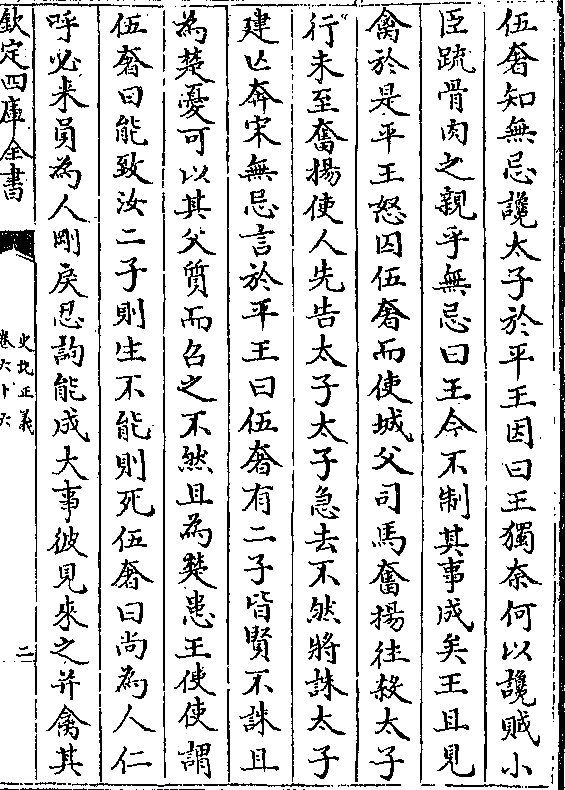 伍奢知無忌讒太子於平王因曰王獨奈何以讒賊小
臣疏骨肉之親乎無忌曰王今不制其事成矣王且見
禽於是平王怒囚伍奢而使城父司馬奮揚往殺太子
行未至奮揚使人先告太子太子急去不然將誅太子
建亡奔宋無忌言於平王曰伍奢有二子皆賢不誅且
為楚憂可以其父質而召之不然且為楚患王使使謂
伍奢曰能致汝二子則生不能則死伍奢曰尚為人仁
呼必来員為人剛戾忍訽能成大事彼見來之并禽其
欽定四庫全書
史記正義
卷六十六
二